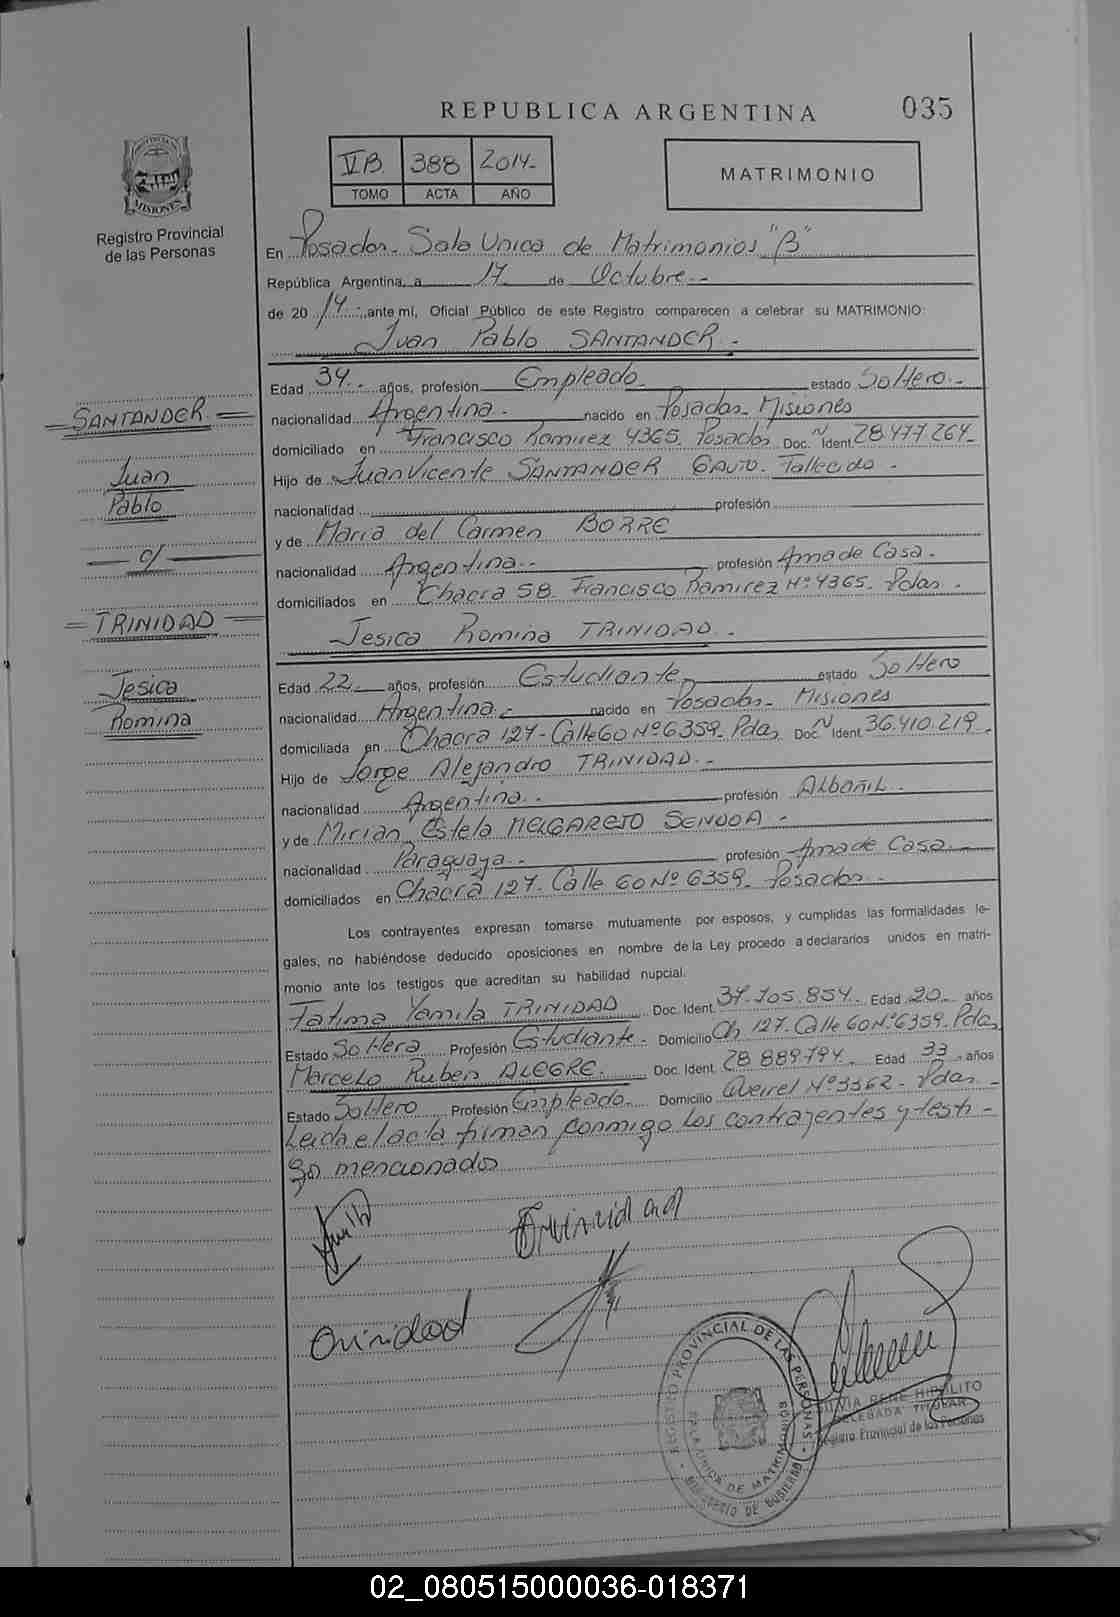 REPUBLICA ARGENTINA
035
Registro Provincial
de las Personas
VB. 388 2014.-
TOMO ACTA AÑO
MATRIMONIO
En Posadas- Sala Unica de Matrimonios "B"
República Argentina, a 17 de Octubre.-
de 20 14.- ,ante mí, Oficial Público de este Registro comparecen a celebrar su MATRIMONIO:
Juan Pablo SANTANDER.-
Edad 34.- años, profesión Empleado estado Soltero.-
nacionalidad Argentina.- nacido en Posadas- Misiones
domiciliado en Francisco Ramirez 4365. Posadas Doc. Nº Ident. 28.477.264-
Hijo de Juan Vicente SANTANDER GAUTO. Fallecido.-
nacionalidad profesión
y de Maria del Carmen BORRE
nacionalidad Argentina.- profesión Ama de Casa.-
domiciliados en Chacra 58. Francisco Ramirez Nº 4365. Pdas.-
Jesica Romina TRINIDAD.-
Edad 22.- años, profesión Estudiante estado Soltero
nacionalidad Argentina.- nacido en Posadas- Misiones
domiciliada en Chacra 127- Calle 60 Nº 6359. Pdas Doc. Nº Ident. 36.410.219.
Hijo de Jorge Alejandro TRINIDAD.-
nacionalidad Argentina.- profesión Albañil.-
y de Mirian Estela MELGAREJO SENDOA.-
nacionalidad Paraguaya.- profesión Ama de Casa.-
domiciliados en Chacra 127. Calle 60 Nº 6359. Posadas.-
Los contrayentes expresan tomarse mutuamente por esposos, y cumplidas las formalidades le-
gales, no habiéndose deducido oposiciones en nombre de la Ley procedo a declararlos unidos en matri-
monio ante los testigos que acreditan su habilidad nupcial.
Fatima Yamila TRINIDAD Doc. Ident. 37.105.854. Edad 20.- años
Estado Soltera Profesión Estudiante.- Domicilio Ch 127. Calle 60 Nº 6359. Pdas
Marcelo Ruben ALEGRE. Doc. Ident. 28.889.794. Edad 33 años
Estado Soltero Profesión Empleado. Domicilio Nº 3362- Pdas.-
Leida el acta firman conmigo los contrayentes y testi-
gos mencionados
SANTANDER
Juan
Pablo
c/
TRINIDAD
Jesica
Romina
Trinidad
REGISTRO PROVINCIAL DE LAS PERSONAS
SALA UNICA DE MATRIMONIOS
MINISTERIO DE GOBIERNO
SILVIA RENE HIPOLITO
DELEGADA TITULAR
Registro Provincial de las Personas
02_080515000036-018371